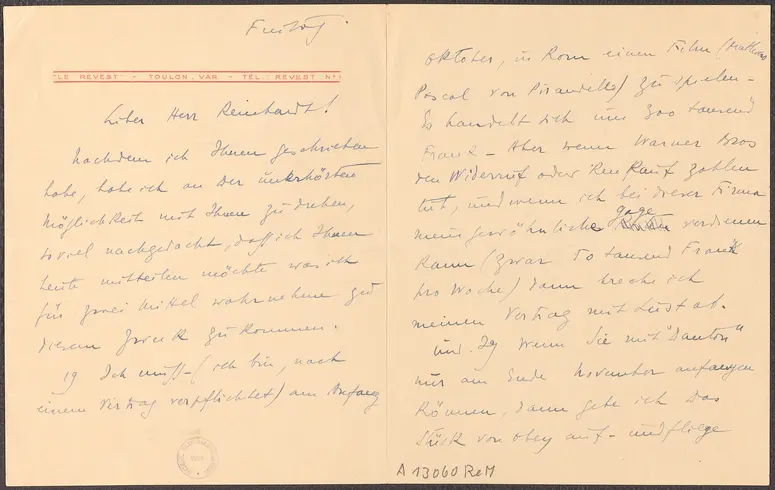 Freitag.
"LE REVEST" - TOULON. VAR - TÉL.: REVEST N° 1
Lieber Herr Reinhardt!
Nachdem ich Ihnen geschrieben
habe, habe ich an der unerhörten
Möglichkeit mit Ihnen zu drehen,
soviel nachgedacht, dass ich Ihnen
heute mitteilen möchte was ich
für zwei Mittel wahrnehme zu
diesem Zweck zu kommen.
1) Ich muss - (ich bin, nach
einem Vertrag verpflichtet) am Anfang
Oktober, in Rom einen Film (Mathias
Pascal von Pirandello) zu spielen -
Es handelt sich um 300 tausend
Frank - Aber wenn Warner Bros
den Widerruf oder Renkauf zahlen
tut, und wenn ich bei dieser Firma
mein gewöhnliche Gage verdienen
kann (zwar 50 tausend Frank
pro Woche) dann breche ich
meinen Vertrag mit Lust ab.
und 2) Wenn Sie mit "Danton"
nur am Ende November anfangen
können, dann gebe ich das
Stück von Obey auf - und fliege
A 13060 ReM